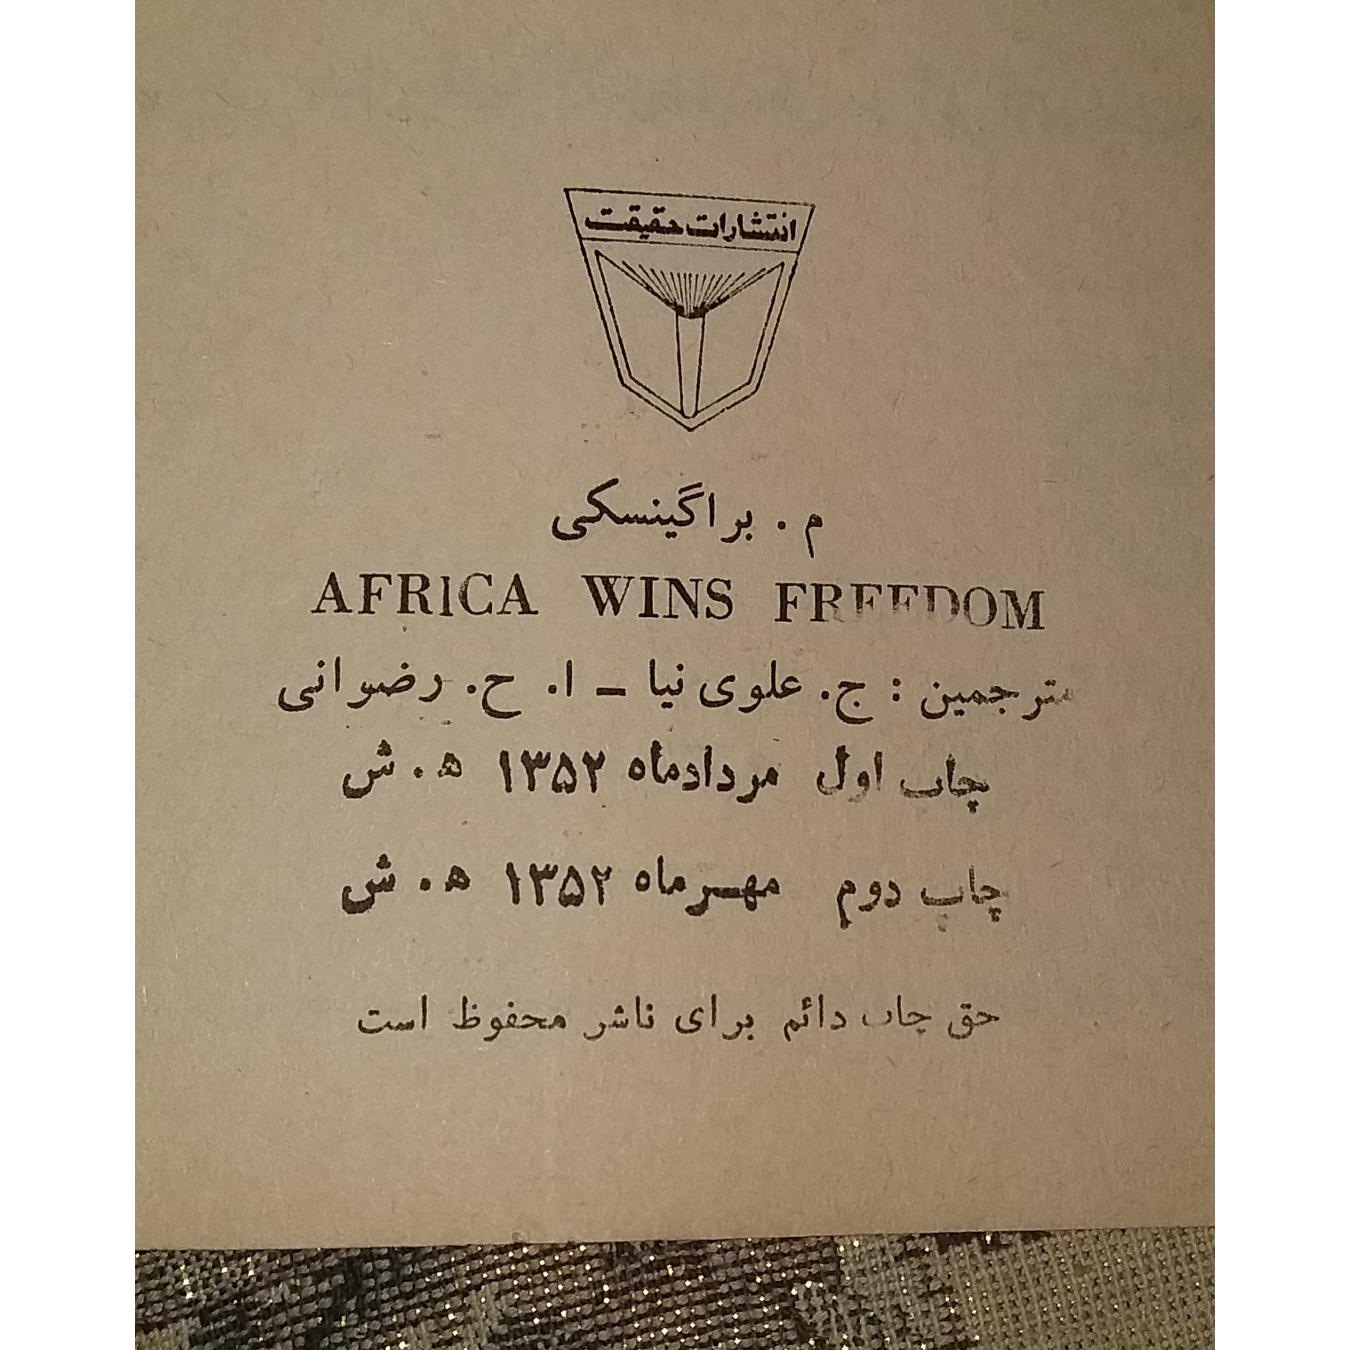 انتشارات حقیقت
م . براگینسکی
AFRICA WINS FREEDOM
مترجمین : ج. علوی نیا ـ ا. ح. رضوانی
چاپ اول مردادماه ۱۳۵۲ ه . ش
چاپ دوم مهرماه ۱۳۵۲ ه . ش
حق چاپ دائم برای ناشر محفوظ است